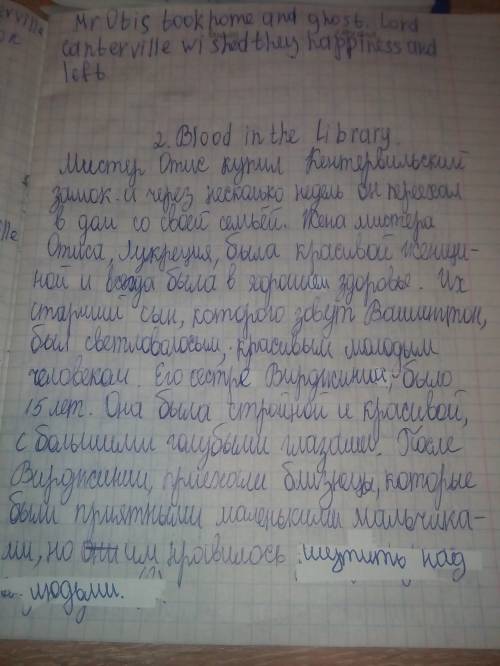 Mr. Otis took home and ghost. Lord
canterville wished they happiness and
left
2. Blood in the Library.
Мистер Отис купил Кентервильский
замок и через несколько недель он переехал
в дом со своей семьёй. Жена мистера
Отиса, Лукреция, была красивой женщи-
ной и всегда была в хорошем здоровье. Их
старший сын, которого зовут Вашингтон,
был светловолосым, красивым молодым
человеком. Его сестре Вирджинии, было
15 лет. Она была стройной и красивой,
с большими голубыми глазами. После
Вирджинии, приехали близнецы, которые
были приятными маленькими мальчика-
ми, но им нравилось шутить над
людьми.